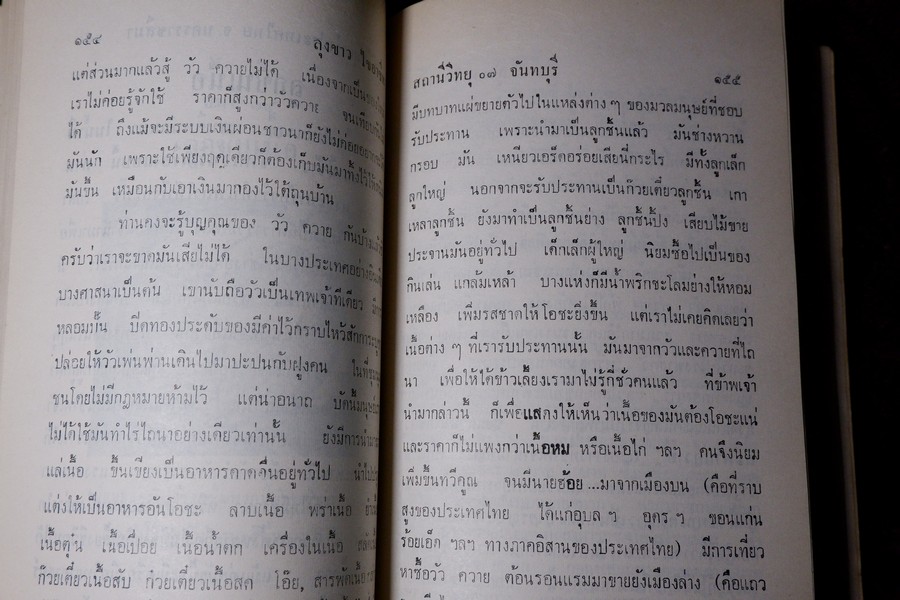 ๑๕๔
ลุงขาว
แต่ส่วนมากแล้วสู้ วัว ควายไม่ได้ เนื่องจากเป็นของ
เราไม่ค่อยรู้จักใช้ ราคาก็สูงกว่าวัวควาย จนเทียบกัน
ได้ ถึงแม้จะมีระบบเงินผ่อนชาวนาก็ยังไม่ค่อย
มันนัก เพราะใช้เพียงฤดูเดียวก็ต้องเก็บมันมาทิ้งไว้
มันขึ้น เหมือนกับเอาเงินมากองไว้ใต้ถุนบ้าน
ท่านคงจะรู้บุญคุณของ วัว ควาย กันบ้าง
ครับว่าเราจะขาดมันเสียไม่ได้ ในบางประเทศอย่าง
บางศาสนาเป็นต้น เขานับถือวัวเป็นเทพเจ้าทีเดียว
หลอมปั้น ปิดทองประดับของมีค่าไว้กราบไหว้สักการะ
ปล่อยให้วัวเพ่นพ่านเดินไปมาปะปนกับฝูงคน
ชนโดยไม่มีกฎหมายห้ามไว้ แต่น่าอนาถ บัดนี้มนุษย์
ไม่ได้ใช้มันทำไร่ไถนาอย่างเดียวเท่านั้น ยังมีการนำ
แล่เนื้อ ขึ้นเขียงเป็นอาหารดาดดื่นอยู่ทั่วไป นำไป
แต่งให้เป็นอาหารอันโอชะ ลาบเนื้อ พร่าเนื้อ
เนื้อตุ๋น เนื้อเปื่อย เนื้อน้ำตก เครื่องในเนื้อ
ก๊วยเตี๋ยวเนื้อสับ ก๋วยเตี๋ยวเนื้อสด โอ๊ย, สารพัดเนื้อ
สถานีวิทยุ ๐๗ จันทบุรี
๑๕๕
มีบทบาทแผ่ขยายตัวไปในแหล่งต่าง ๆ ของมวลมนุษย์ที่ชอบ
รับประทาน เพราะนำมาเป็นลูกชิ้นแล้ว มันช่างหวาน
กรอบ มัน เหนียวเอร็ดอร่อยเสียนี่กระไร มีทั้งลูกเล็ก
ลูกใหญ่ นอกจากจะรับประทานเป็นก๊วยเตี่ยวลูกชิ้น เกา
เหลาลูกชิ้น ยังมาทำเป็นลูกชิ้นย่าง ลูกชิ้นปิ้ง เสียบไม้ขาย
ประจานมันอยู่ทั่วไป เด็กเล็กผู้ใหญ่ นิยมซื้อไปเป็นของ
กินเล่น แกล้มเหล้า บางแห่งก็มีน้ำพริกชะโลมย่างให้หอม
เหลือง เพิ่มรสชาดให้โอชะยิ่งขึ้น แต่เราไม่เคยคิดเลยว่า
เนื้อต่าง ๆ ที่เรารับประทานนั้น มันมาจากวัวและควายที่ไถ
นา เพื่อให้ได้ข้าวเลี้ยงเรามาไม่รู้กี่ชั่วคนแล้ว ที่ข้าพเจ้า
นำมากล่าวนี้ ก็เพื่อแสดงให้เห็นว่าเนื้อของมันต้องโอชะแน่
และราคาก็ไม่แพงกว่าเนื้อหมู หรือเนื้อไก่ ฯลฯ คนจึงนิยม
เพิ่มขึ้นทวีคูณ จนมีนายฮ้อย ...มาจากเมืองบน (คือที่ราบ
สูงของประเทศไทย ได้แก่อุบล ฯ อุดร ฯ ขอนแก่น
ร้อยเอ็ด ฯลฯ ทางภาคอิสานของประเทศไทย) มีการเที่ยว
หาซื้อวัว ควาย ต้อนรอนแรมมาขายยังเมืองล่าง (คือแถว